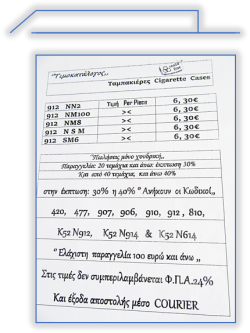 "Τιμοκατάλογος,,
Ταμπακιέρες Cigarette Cases
912 NN2 Τιμή Per Piece 6, 30€
912 NM100 >< 6, 30€
912 NM8 >< 6, 30€
912 N S M >< 6, 30€
912 SM6 >< 6, 30€
"Πωλήσεις μόνο χονδρική,,
Παραγγελία: 20 τεμάχια και άνω: έκπτωση 30%
Και από 40 τεμάχια, και άνω 40%
στην έκπτωση: 30% η 40% " Ανήκουν οι Κωδικοί,,
420, 477, 907, 906, 910, 912 , 810,
K52 N912, K52 N914 & K52 N614
" Ελάχιστη παραγγελία 100 ευρώ και άνω ,,
Στις τιμές δεν συμπεριλαμβάνεται Φ.Π.Α.24%
Και έξοδα αποστολής μέσο COURIER